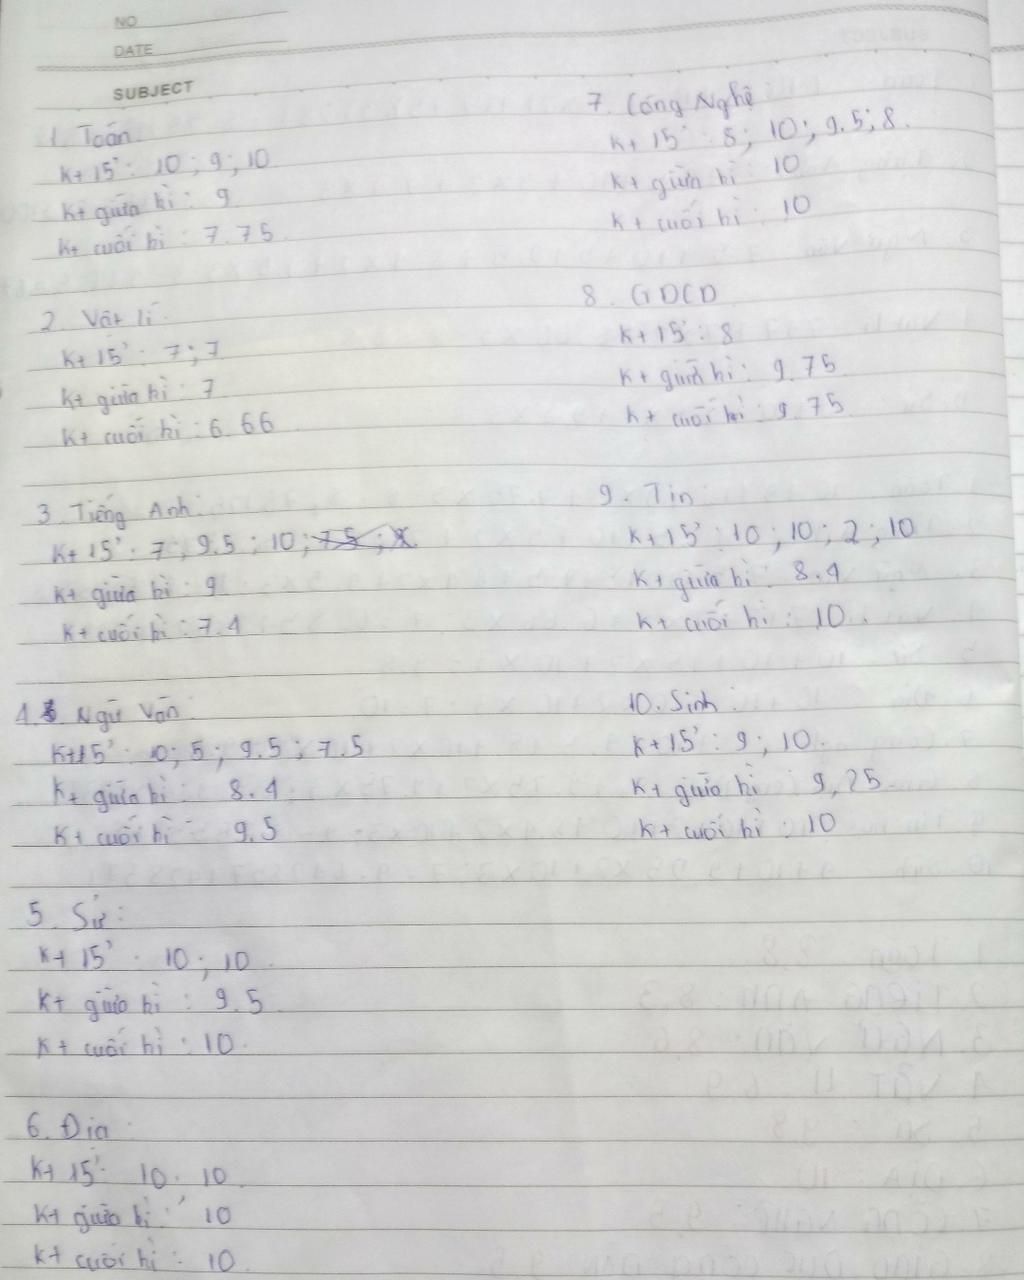 NO
DATE
SUBJECT
1. Toán
Kt 15' : 10 ; 9 ; 10
Kt giữa kì : 9
Kt cuối kì : 7.75
2. Vật lí
Kt 15' : 7 ; 7
Kt giữa kì : 7
Kt cuối kì : 6.66
3. Tiếng Anh :
Kt 15' : 7 ; 9.5 ; 10 ;
Kt giữa kì : 9
Kt cuối kì : 7.4
4. Ngữ Văn
Kt 15' : 10 ; 5 ; 9.5 ; 7.5
Kt giữa kì : 8.4
Kt cuối kì : 9.5
5. Sử :
Kt 15' : 10 ; 10
Kt giữa kì : 9.5
Kt cuối kì : 10
6. Địa :
Kt 15' : 10 ; 10
Kt giữa kì : 10
Kt cuối kì : 10
7. Công Nghệ
Kt 15' : 8 ; 10 ; 9.5 ; 8
Kt giữa kì : 10
Kt cuối kì : 10
8. GDCD
Kt 15' : 8
Kt giữa kì : 9.75
Kt cuối kì : 9.75
9. Tin :
Kt 15' : 10 ; 10 ; 2 ; 10
Kt giữa kì : 8.4
Kt cuối kì : 10
10. Sinh :
Kt 15' : 9 ; 10
Kt giữa kì : 9,25
Kt cuối kì : 10